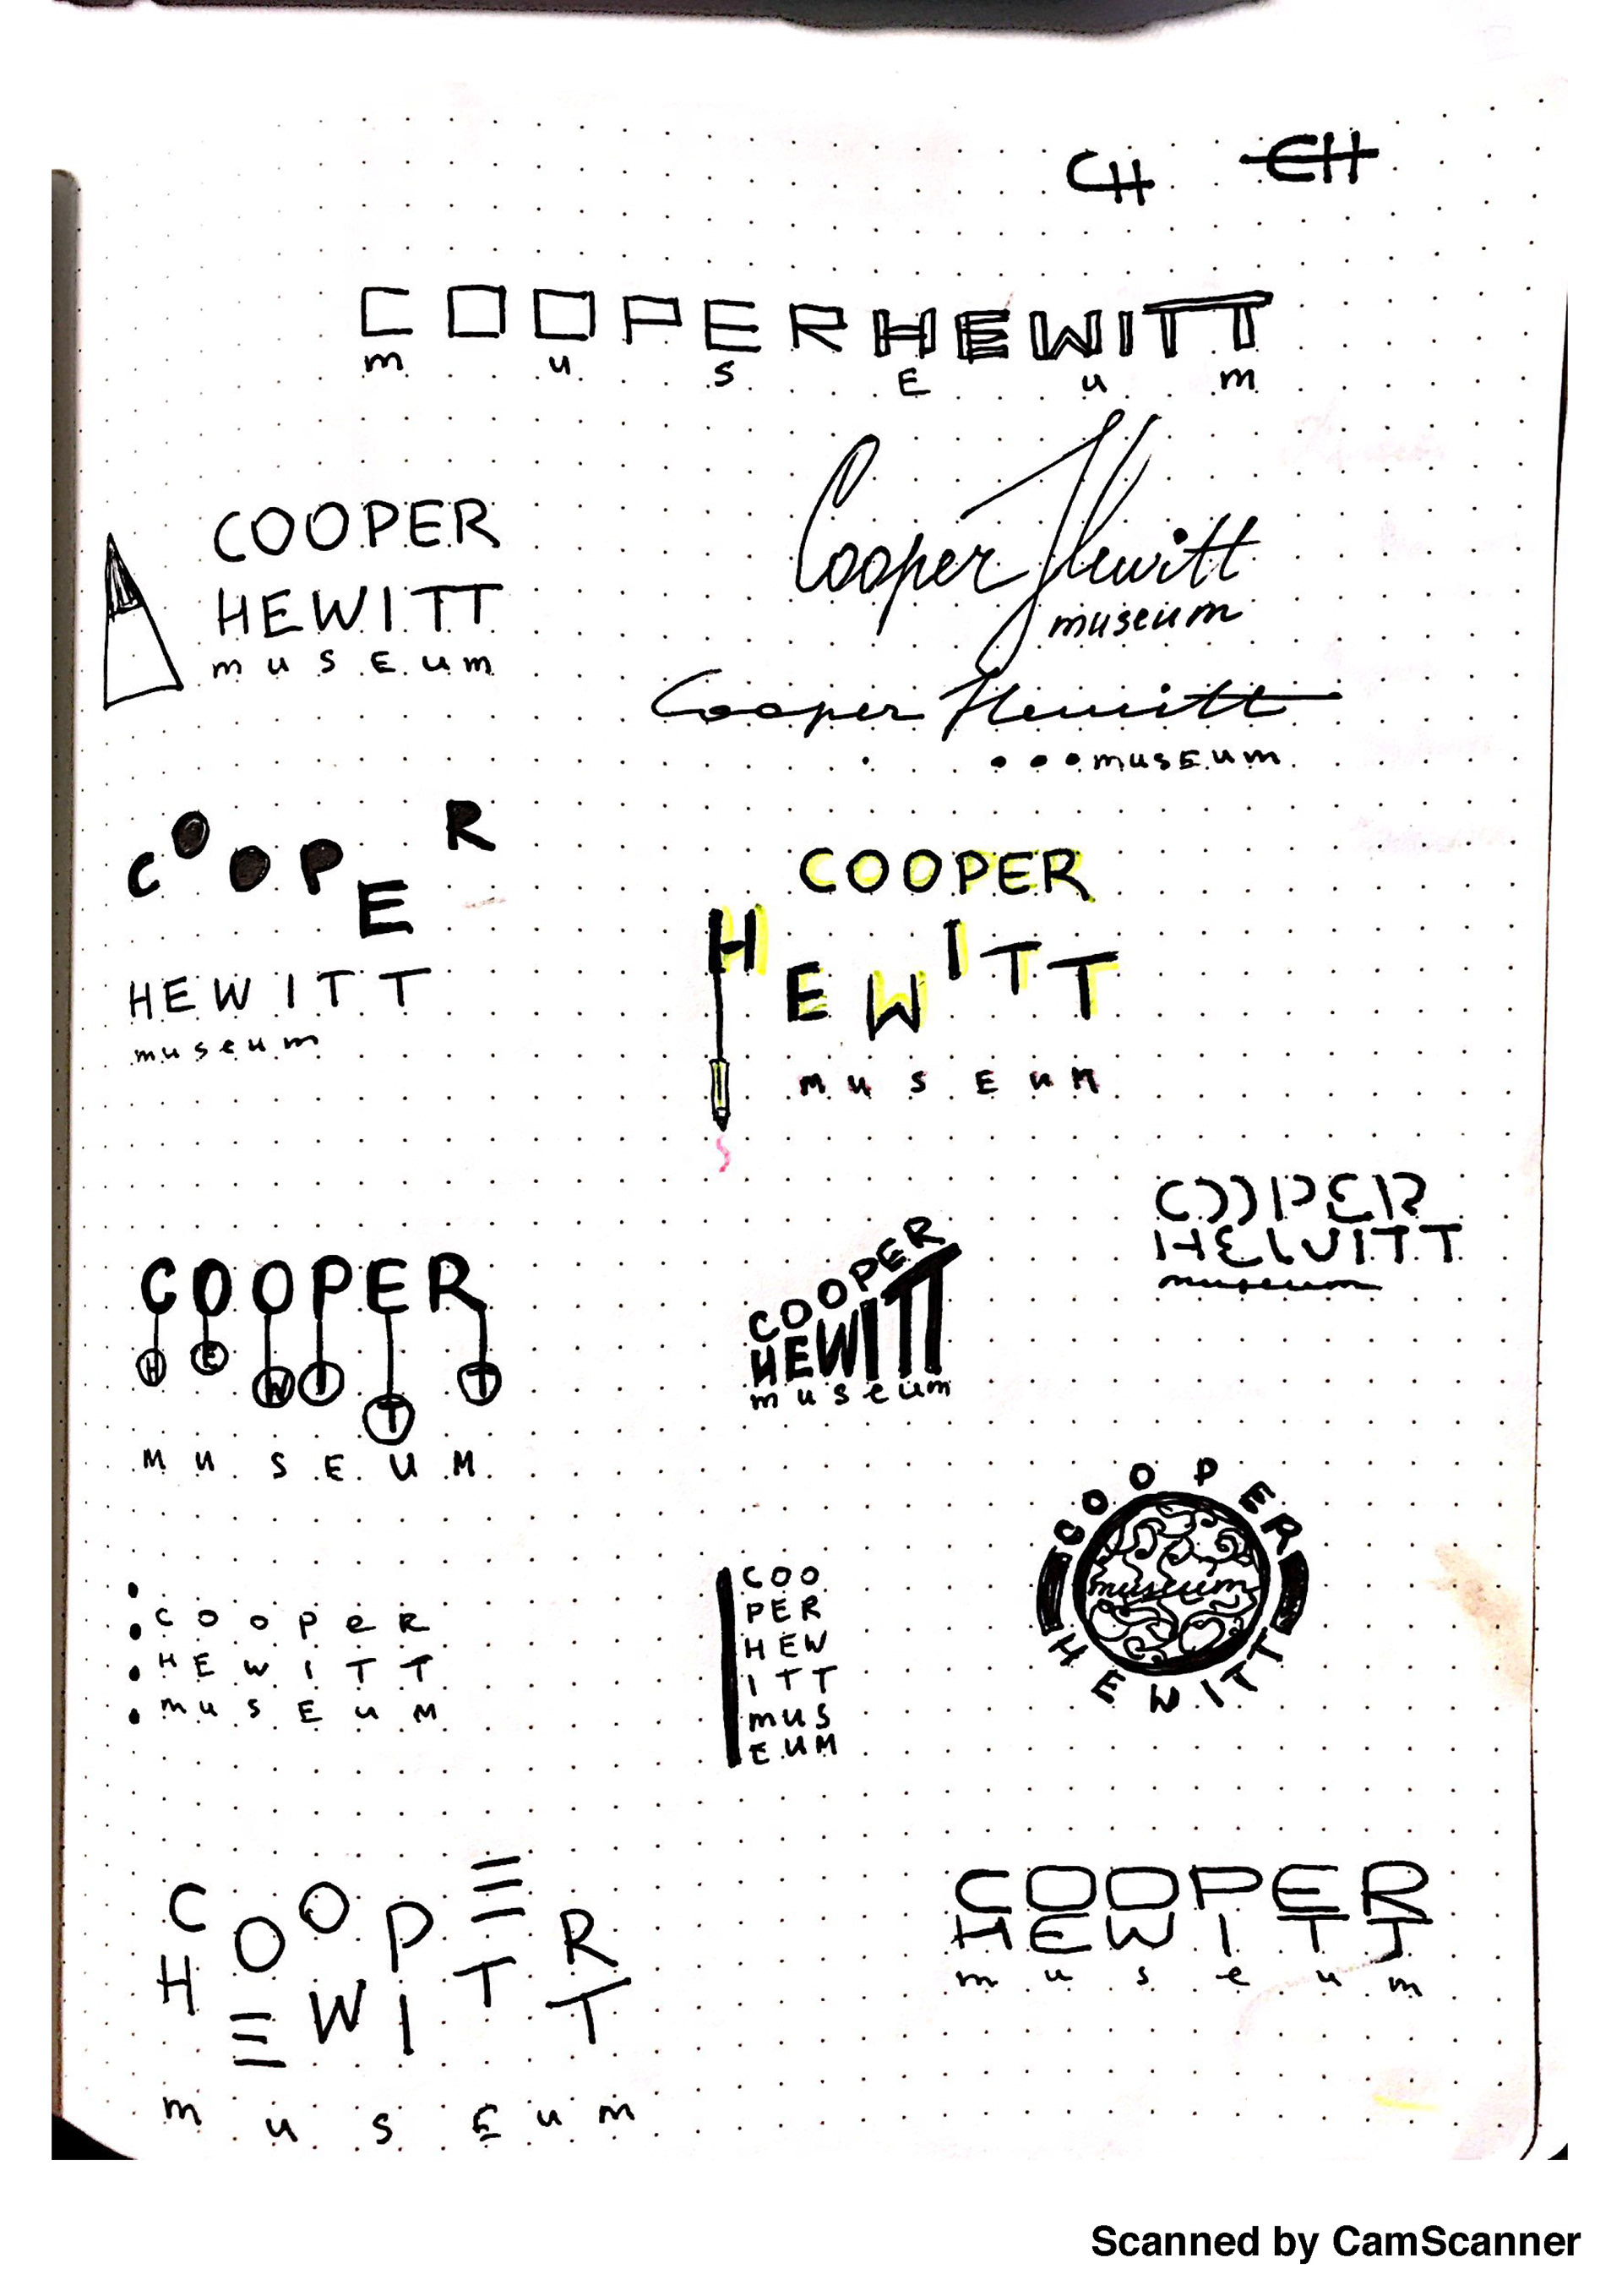 CH CH
COOPERHEWITT
m u s E u m
COOPER
HEWITT
m u s E u m
Cooper Hewitt
museum
Cooper Hewitt
musEum
COOPER
HEWITT
museum
COOPER
HEWITT
m u s E u M
COOPER
HEWITT
M u S E U M
COOPER
HEWITT
museum
COOPER
HEWITT
museum
C o o p e R
H E W I T T
m u s E u M
COO
PER
HEW
ITT
mUS
EUM
COOPER
museum
HEWITT
C O O P E R
H E W I T T
m u s E u m
COOPER
HEWITT
m u s e u m
Scanned by CamScanner